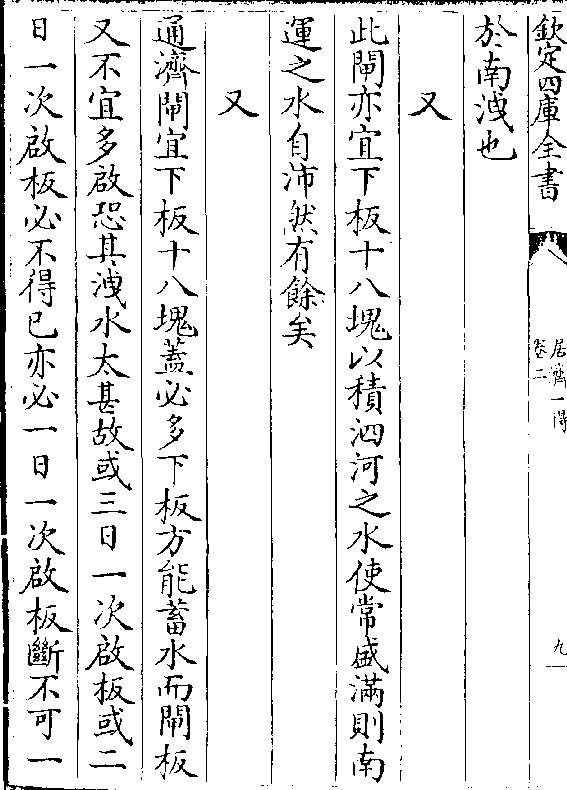 欽定四庫全書
居濟一得
卷二
九
於南洩也
又
此閘亦宜下板十八塊以積泗河之水使常盛滿則南
運之水自沛然有餘矣
又
通濟閘宜下板十八塊蓋必多下板方能蓄水而閘板
又不宜多啟恐其洩水太甚故或三日一次啟板或二
日一次啟板必不得已亦必一日一次啟板斷不可一